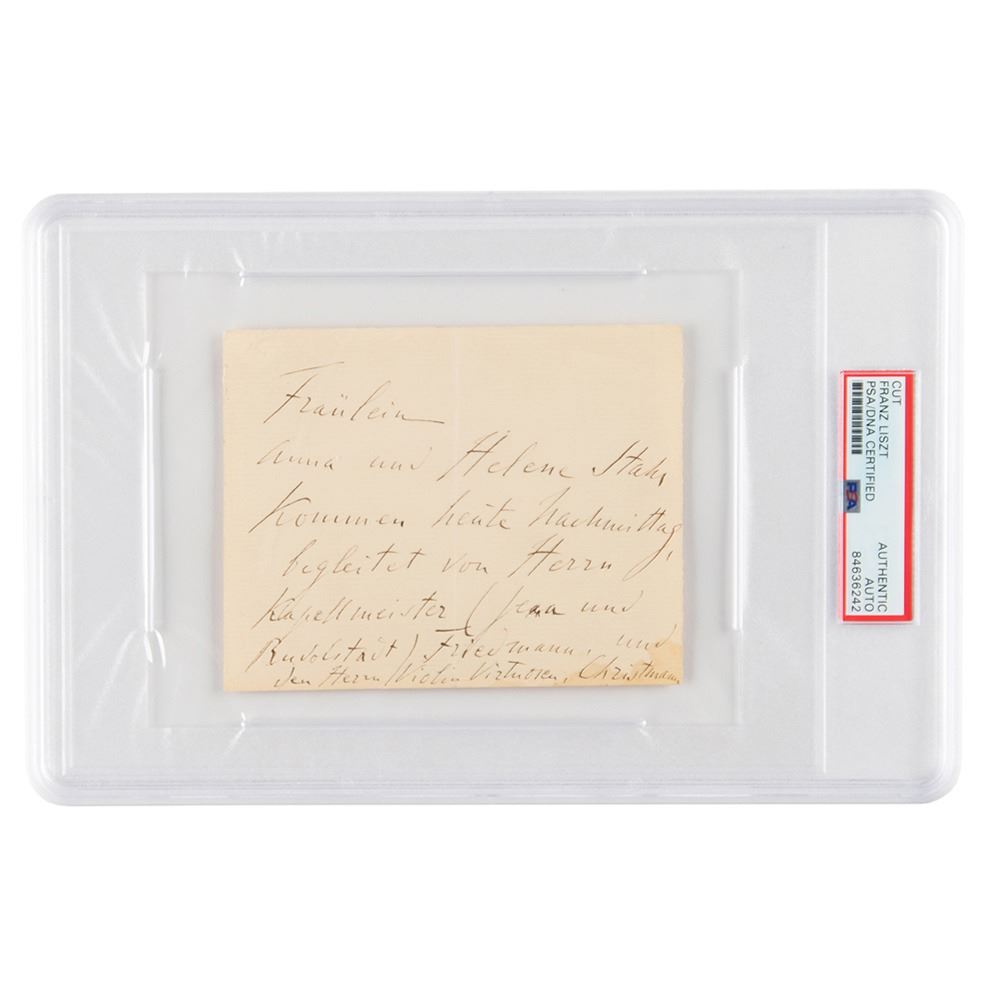 Fräulein
Anna und Helene Stahr
Kommen heute Nachmittag,
begleitet von Herrn
Kapellmeister (Jena und
Rudolstadt) Friedmann, und
den Herrn Violin Virtuosen, Christmann
CUT
FRANZ LISZT
PSA/DNA CERTIFIED
PSA
AUTHENTIC
AUTO
84636242